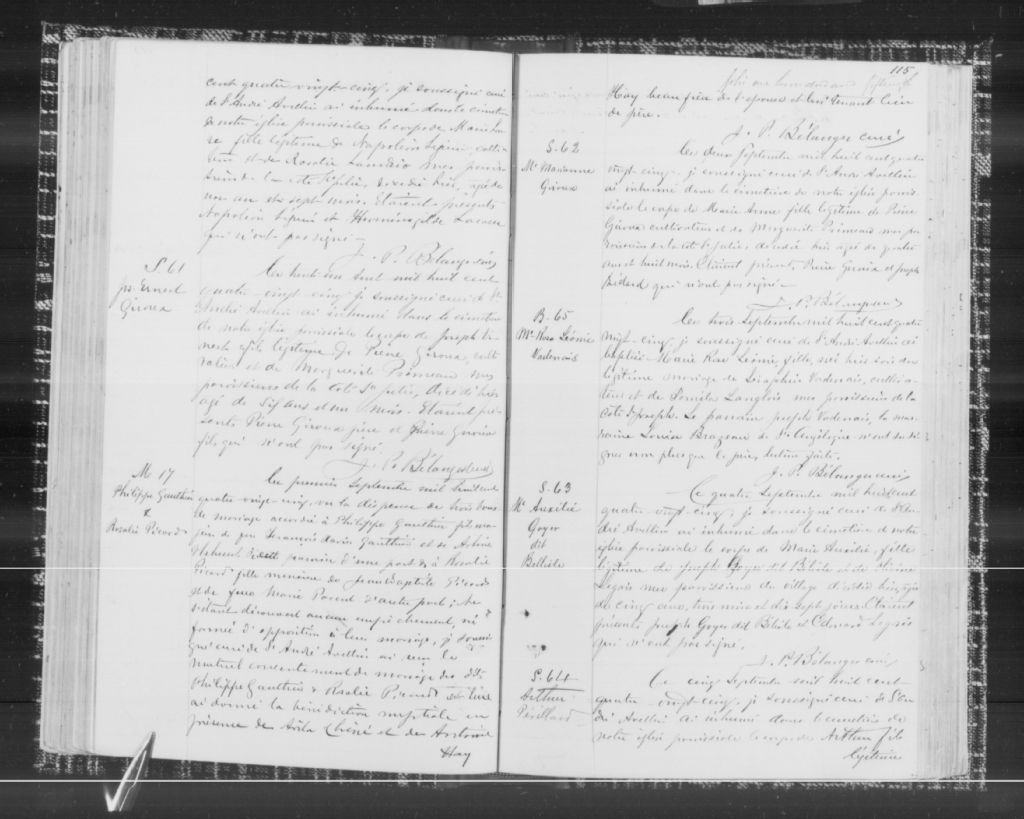 cent quatre vingt-cinq, je soussigné curé
de St André Avellin ai inhumé dans le cimetière
de notre église paroissiale le corps de
fille légitime de Napoléon Lepine, culti-
et de Rosalie mes parois-
de la côte St Julie, décédée hier, agée de
un an et sept mois. Etaient présents
Napoléon Lepine et
qui n'ont pas signé -
J. P. Bélanger curé
S. 61
Js Ernest
Giroux
Le huit cent
quatre-vingt-cinq je soussigné curé de St
André Avellin ai inhumé dans le cimetière
de notre église paroissiale le corps de Joseph Er-
nest fils légitime de Pierre Giroux, culti-
vateur et de Marguerite Primeau mes
paroissiens de la côte St Julie, décédé hier
agé de six ans et un mois. Etaient pré-
sents Pierre Giroux père et Pierre Giroux
fils, qui n'ont pas signé.
J. P. Bélanger curé
M 17
Philippe Gauthier
&
Rosalie Picard
Le premier Septembre mil huit cent
quatre vingt cinq, vu la dispense de trois bans
de mariage accordée à Philippe Gauthier fils ma-
jeur de feu Gauthier et de
de cette paroisse d'une part & à Rosalie
Picard fille mineure de Jean Baptiste Picard
et de feue Marie Parent d'autre part; ne
s'étant découvert aucun empêchement, ni
formé d'opposition à leur mariage, je soussi-
gné curé de St André Avellin ai reçu le
mutuel consentement de mariage des dits
Philippe Gauthier & Rosalie Picard et leur
ai donné la bénédiction nuptiale en
présence de et de
Hay
115
Hay beau frère de l'épouse et lieu tenant lieu
de père.
J. P. Bélanger curé
S. 62
Me Marianne
Giroux
Le deux Septembre mil huit cent quatre
vingt cinq, je soussigné curé de St André Avellin
ai inhumé dans le cimetière de notre église parois-
siale le corps de Marie Anne fille légitime de Pierre
Giroux cultivateur et de Marguerite Primeau mes pa-
roissiens de la côte St Julie, décédée hier agée de quatre
ans et huit mois. Etaient présents, Pierre Giroux et Joseph
Bédard qui n'ont pas signé -
J. P. Bélanger curé
B. 65
Me Rose Léonie
Vadenais
Le trois Septembre mil huit cent quatre
vingt-cinq, je soussigné curé de St André Avellin ai
baptisé Marie Rose Léonie, fille, née hier soir du
légitime mariage de Séraphin Vadenais, cultiva-
teur et de Langlois mes paroissiens de la
Côte St Joseph. Le parrain Joseph Vadenais, la mar-
raine Louise Brazeau de Ste Angélique n'ont su si-
gner non plus que le père, lecture faite.
J. P. Bélanger curé
S. 63
Me Auxilié
Goyer
dit
Bellisle
Le quatre Septembre mil huit cent
quatre vingt cinq, je soussigné curé de St An-
dré Avellin ai inhumé dans le cimetière de notre
église paroissiale le corps de Marie Auxilié, fille
légitime de Joseph Goyer dit Bélisle et de
Legris mes paroissiens du village décédée hier, agée
de cinq ans, trois mois et dix sept jours. Etaient
présents Joseph Goyer dit Bélisle et Edouard Legris
qui n'ont pas signé.
J. P. Bélanger curé
S. 64
Arthur
Périllard
Le cinq Septembre mil huit cent
quatre vingt-cinq, je soussigné curé de St An-
dré Avellin ai inhumé dans le cimetière de
notre église paroissiale le corps de Arthur fils
légitime